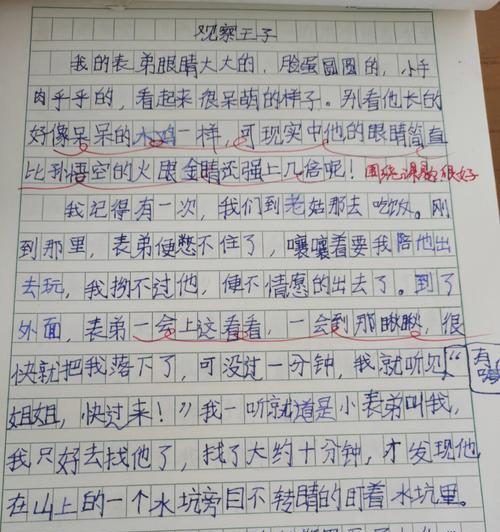 观察王子
我的表弟眼睛大大的，脸蛋圆圆的，小手
肉乎乎的，看起来很呆萌的样子。别看他长的
好像呆呆的木鸡一样，可现实中他的眼睛简直
比孙悟空的火眼金睛还强上几倍呢！围绕课题很好
我记得有一次，我们到老姑那去吃饭。刚
到那里，表弟便憋不住了，嚷嚷着要我陪他出
去玩，我拗不过他，便不情愿的出去了。到了
外面，表弟一会上这看看，一会到那瞅瞅，很
快就把我落下了，可没过一分钟，我就听见“
姐姐，快过来！”我一听就道是小表弟叫我，
我只好去找他了，找了大约十分钟，才发现他
在山上的一个水坑旁目不转睛的盯着水坑里。